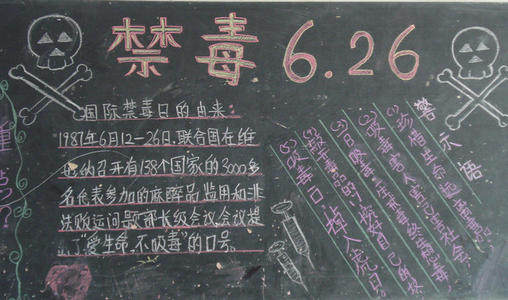 禁毒 6.26
国际禁毒日的由来:
1987年6月12-26日,联合国在维
也纳召开有138个国家的3000多
名代表参加的麻醉品滥用和非
法贩运问题部长级会议,会议提
出了"爱生命,不吸毒"的口号。
警示语
(1)珍惜生命
(2)吸毒害人害己害社会
(3)一日吸毒
掉入虎口